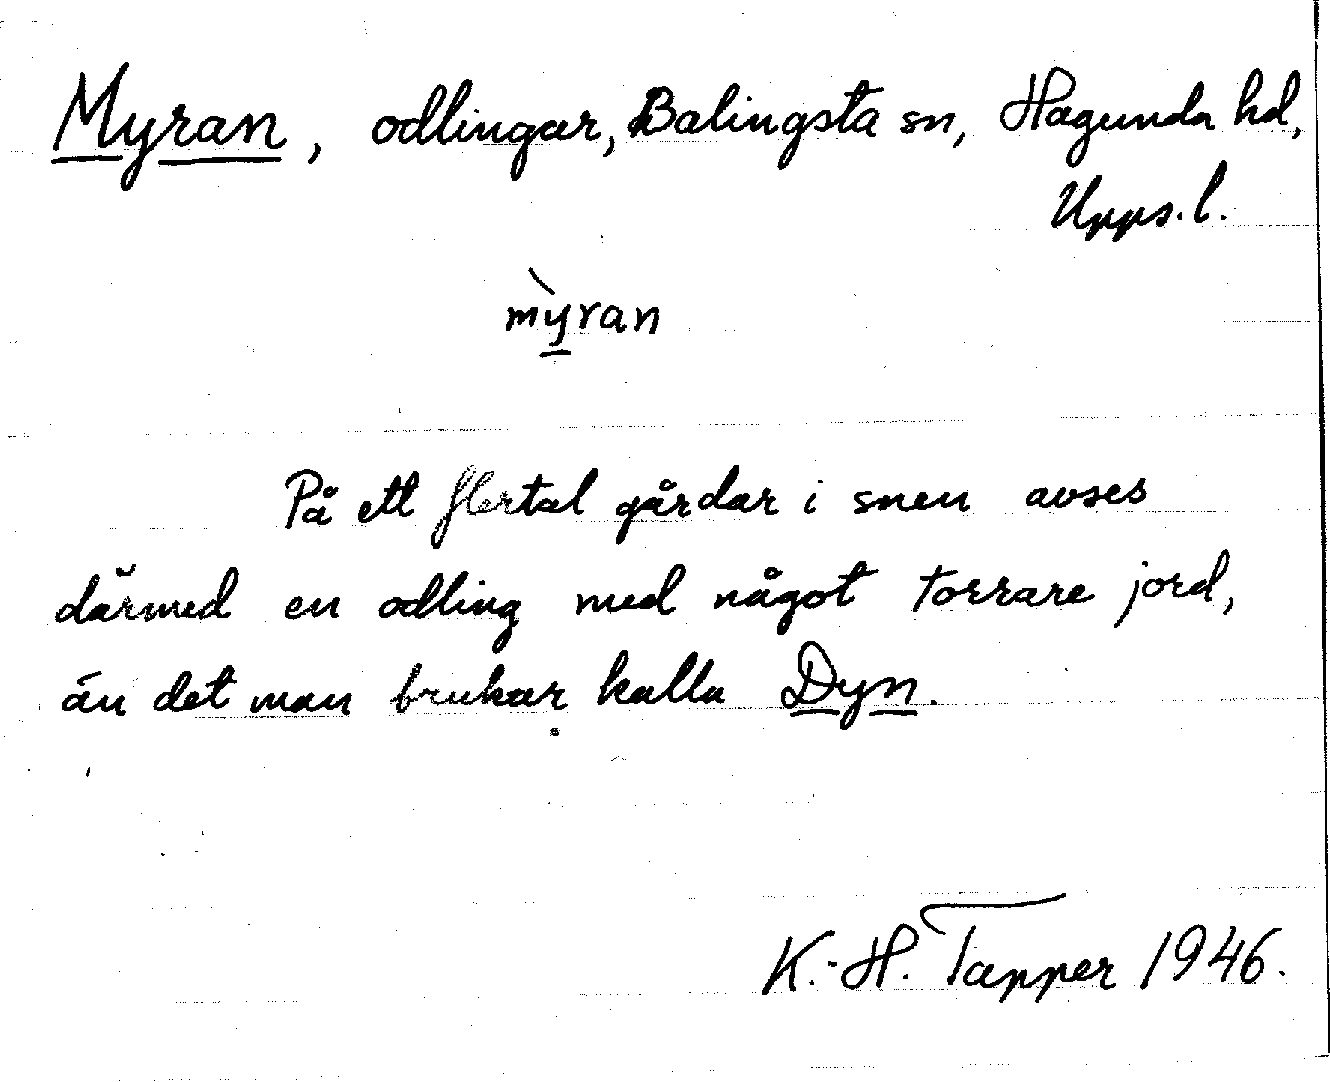 Myran, odlingar, Balingsta sn, Hagunda hd,
Upps. l.
mỳran
På ett flertal gårdar i snen avses
därmed en odling med något torrare jord,
än det man brukar kalla Dyn.
K.-H. Tapper 1946.